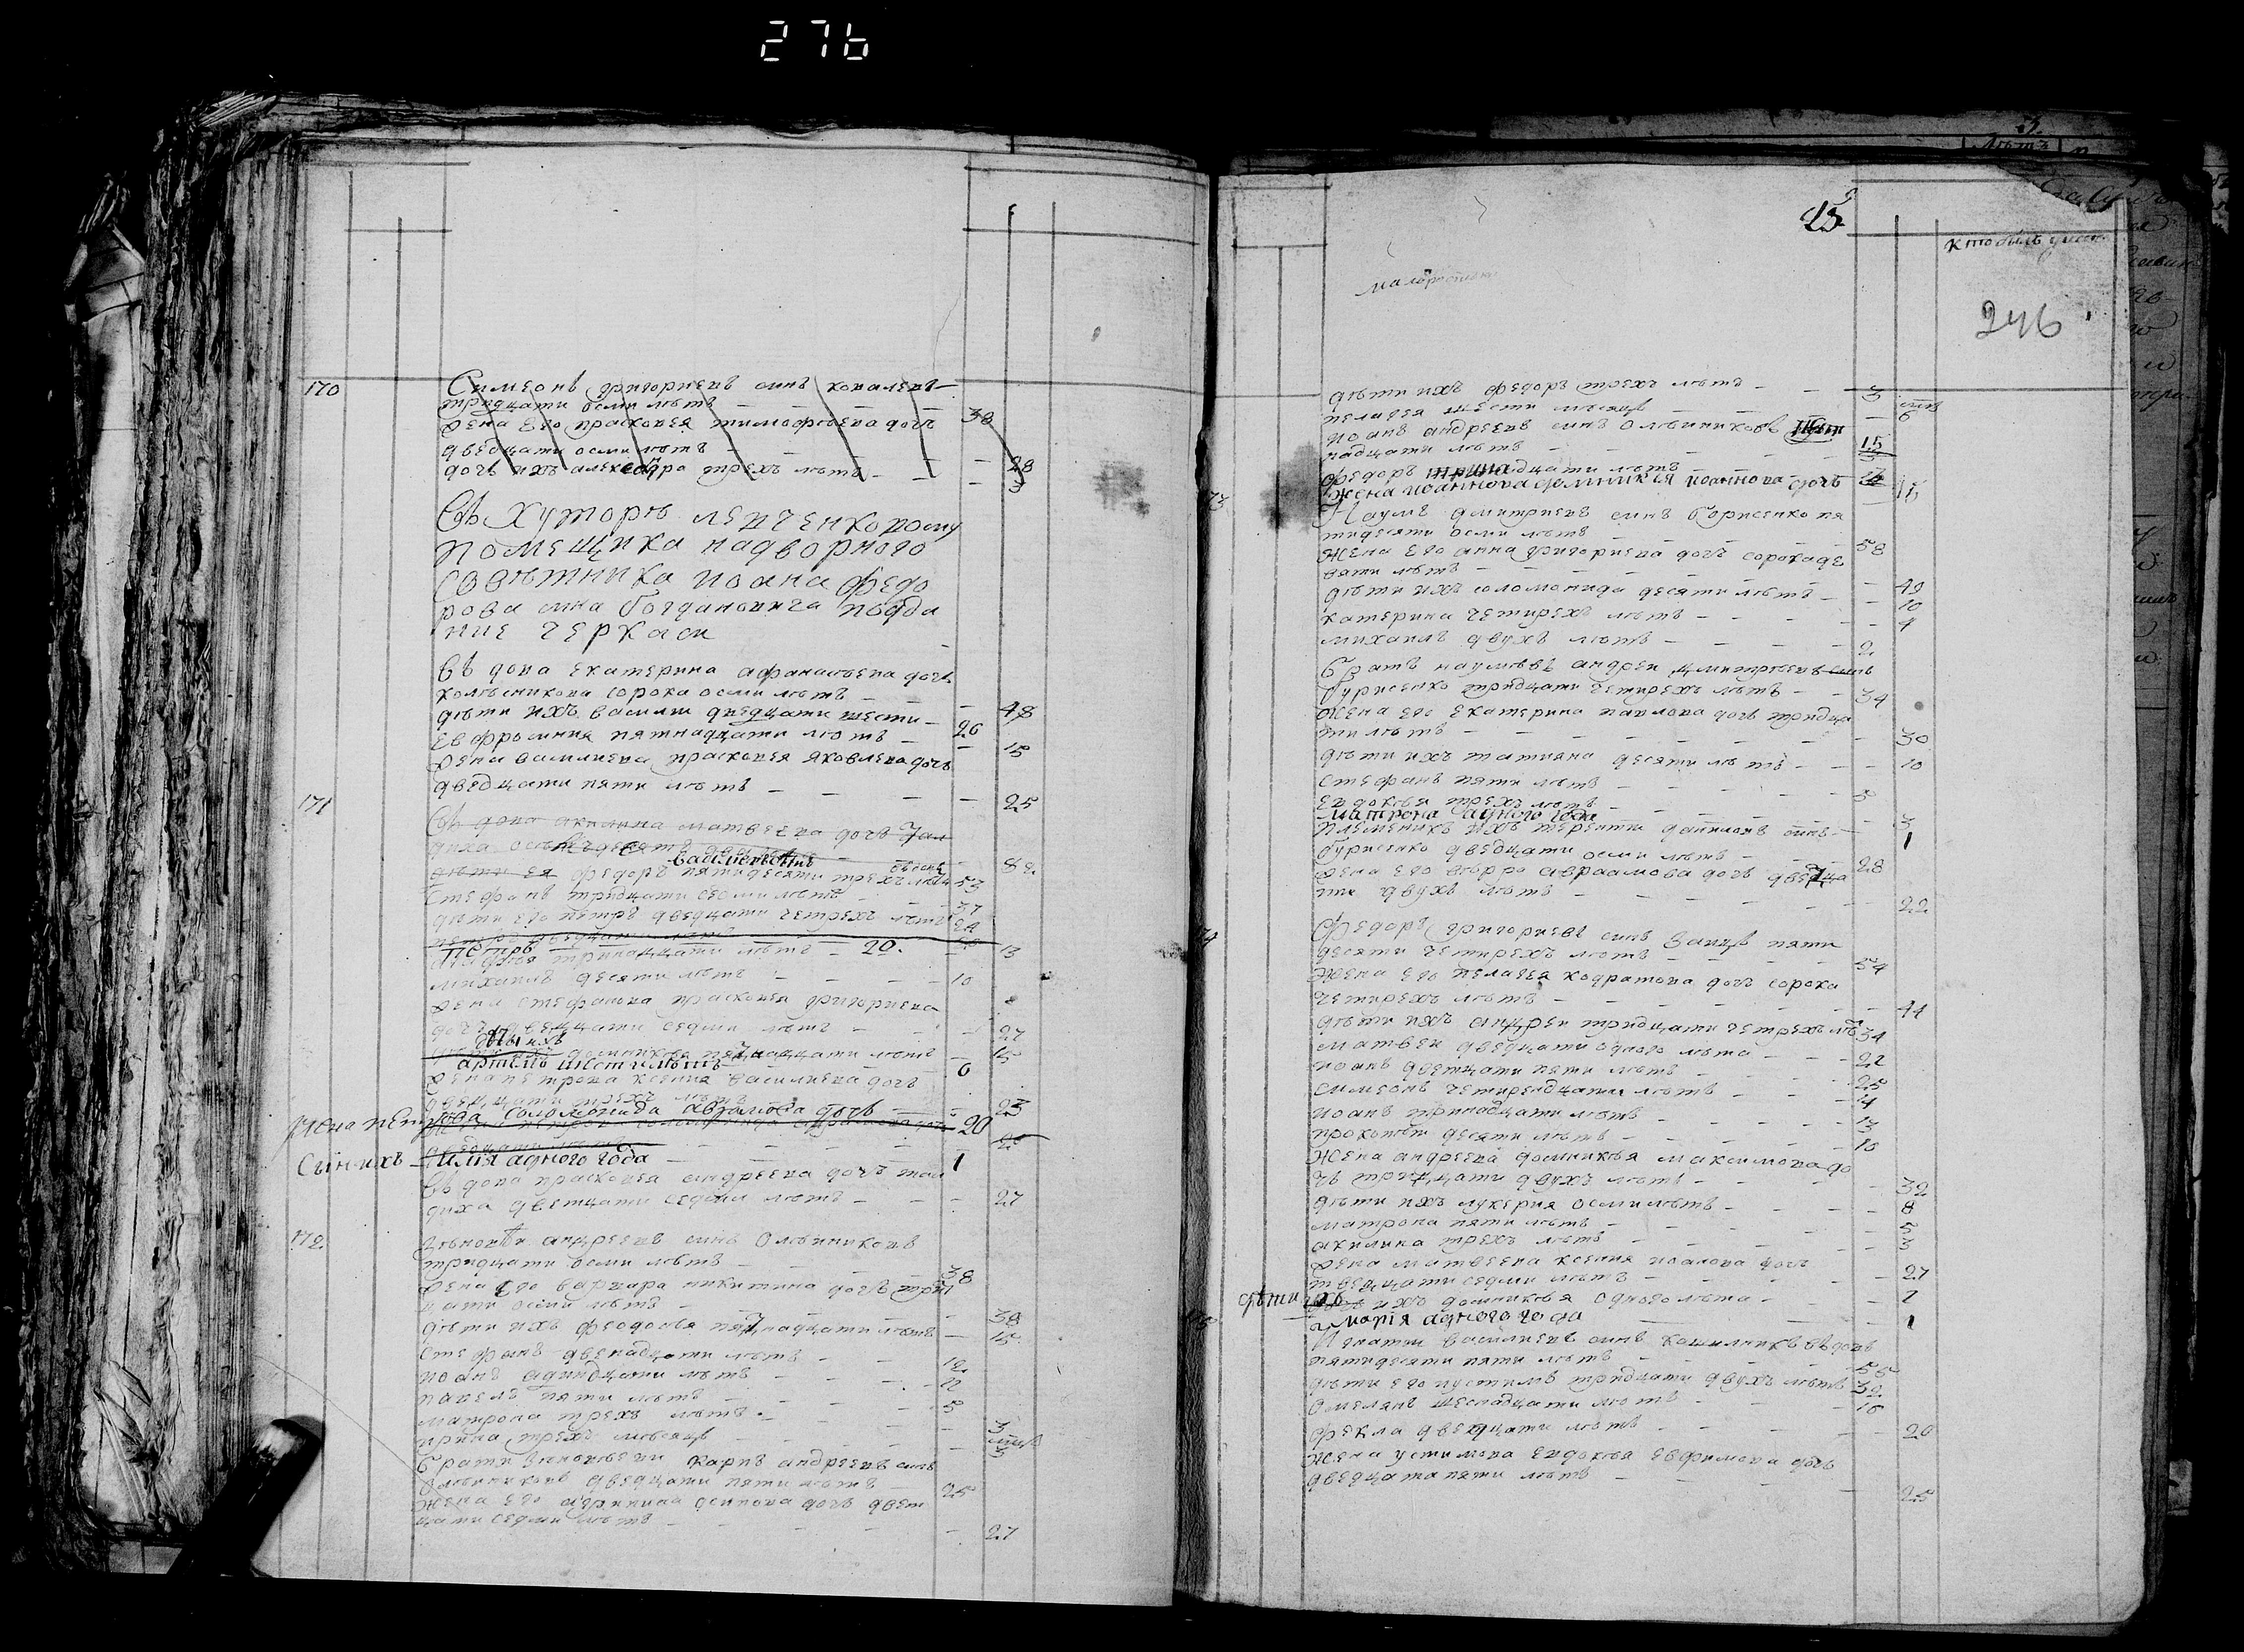 276
170
Симеонъ григориевъ синъ ковалевъ
тридцати осми лѣтъ
38
жена Его прасковея тимофѣева дочъ
двѣдцати осми лѣтъ
28
дочъ ихъ александра трехъ лѣтъ
3
Въ хуторѣ лещенковому
помещика надворного
совѣтника иоана федо
рова сина богдановича подда
ние черкаси
въ дова екатерина афанасьева дочъ
колѣсникова сорока осми лѣтъ
48
дѣти ихъ василии двѣдцати шести
26
евфросиния пятнадцати лѣтъ
15
жена василиева прасковея яковлева дочъ
двѣдцати пяти лѣтъ
25
171
въ дова акилина матвеева дочъ
82
федоръ пятидесяти трехъ лѣтъ
53
стефанъ тридцати седми лѣтъ
37
дѣти его петръ двѣдцати четирехъ лѣтъ
24
петръ
20
тринадцати лѣтъ
13
михаилъ десяти лѣтъ
10
жена стефанова прасковея григориева
дочъ двѣдцати седми лѣтъ
27
доминикея пятнадцати лѣтъ
15
артемъ шести лѣтъ
6
жена петрова ксения василиева дочъ
двѣдцати трехъ лѣтъ
23
жена петрова соломонида аврамова дочъ
20
двѣдцати лѣтъ
20
Сын ихъ илія адного года
1
въ дова прасковея андреева дочъ
диха двѣтцати седми лѣтъ
27
172
андреевъ синъ Олѣиниковъ
тридцати осми лѣтъ
38
жена Его варвара никитина дочъ трит
цати осми лѣтъ
38
дѣти ихъ феодосья пятнадцати лѣтъ
15
стефанъ двенадцати лѣтъ
12
иоанъ адинадцати лѣтъ
11
павелъ пяти лѣтъ
5
матрона трехъ лѣтъ
3
ирина трехъ мѣсяцъ
3
карпъ андреевъ синъ
Олѣиниковъ двѣдцати пяти лѣтъ
25
жена его агрипина осипова дочъ двет
цати седми лѣтъ
27
15
кто билъ
246
дѣти ихъ федоръ трехъ лѣтъ
3
пелагея шести мѣсяцъ
6
иоанъ андреевъ синъ Олѣиниковъ пят
надцати лѣтъ
15
федоръ тринадцати лѣтъ
жена иоаннова доминикія иоаннова дочъ
15
73
Наумъ дмитриевъ синъ борисенко пя
тидесяти осми лѣтъ
58
жена его анна григориева дочъ сорокаде
вяти лѣтъ
49
дѣти ихъ соломонида десяти лѣтъ
10
катерина четирехъ лѣтъ
4
михаилъ двухъ лѣтъ
2
братъ наумовъ андреи дмитриевъ синъ
бурисенко тридцати четирехъ лѣтъ
34
жена его екатерина павлова дочъ тридца
ти лѣтъ
30
дѣти ихъ татияна десяти лѣтъ
10
стефанъ пяти лѣтъ
5
евдокея трехъ лѣтъ
3
матрона адного года
1
племеникъ ихъ терентии данииловъ синъ
бурисенко двѣдцати осми лѣтъ
28
жена его авраамова дочъ двѣдца
ти двухъ лѣтъ
22
74
Федоръ григориевъ синъ Заицъ пяти
десяти четирехъ лѣтъ
54
жена его пелагея кодратова дочъ сорока
четирехъ лѣтъ
44
дѣти ихъ андреи тридцати четирехъ лѣ
34
матвеи двѣдцати одного лѣта
21
иоанъ двѣтцати пяти лѣтъ
25
симеонъ четирнадцати лѣтъ
14
иоанъ тринадцати лѣтъ
13
прокопии десяти лѣтъ
10
жена андреева доминикея максимова до
чъ тридцати двухъ лѣтъ
32
дѣти ихъ лукерия осми лѣтъ
8
матрона пяти лѣтъ
5
акилина трехъ лѣтъ
3
жена матвеева ксения иоанова дочъ
твѣдцати седми лѣтъ
27
дѣти ихъ доминикея одного лѣта
1
марія адного года
1
Игнатии василиевъ синъ въдовъ
пятидесяти пяти лѣтъ
55
дѣти его иустимъ тридцати двухъ лѣтъ
32
Омелянъ шеснадцати лѣтъ
16
фекла двѣдцати лѣтъ
20
жена устимова евдокея евфимова дочъ
двѣдцата пяти лѣтъ
25